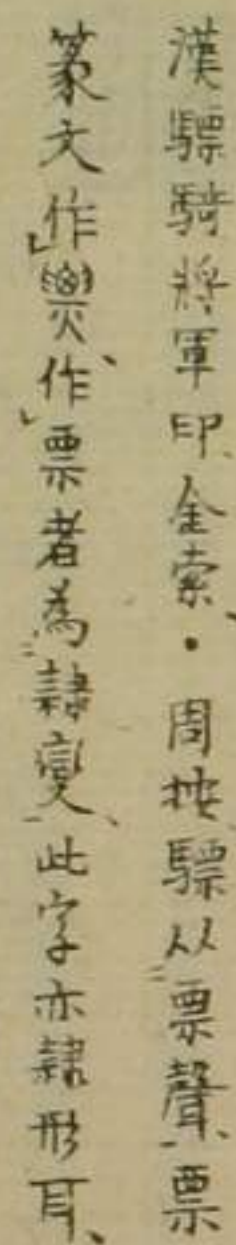 漢驃騎將軍印、金索、·周按驃从票聲、票
篆文作㶾、作票者為隸變、此字亦隸形耳、